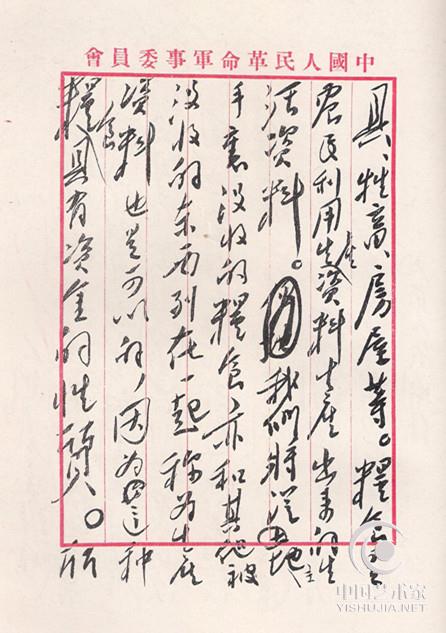 中國人民革命軍事委員會
具、牲畜、房屋等。糧食是
農民利用生產資料生產出来的生
活資料。我們將從地主
手裏没收的糧食亦和其他被
没收的东西列在一起称为生產
資料也是可以的,因为這种
糧食具有资金的性質。所
中国艺术家
YISHUJIA.NET